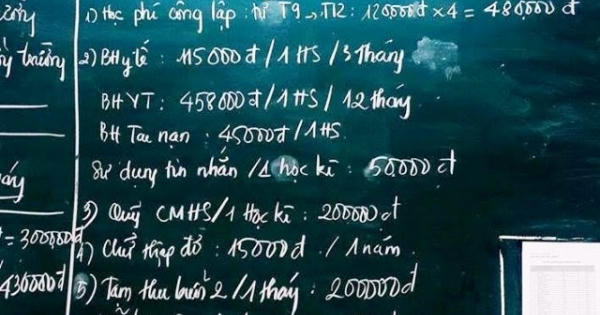 1) Học phí công lập : từ T9 → T12 : 120000đ × 4 = 480000 đ
2) BH y tế : 115000đ / 1 HS / 3 tháng
BHYT : 458000đ / 1HS / 12 tháng
BH Tai nạn : 45000đ / 1HS
Sử dụng tin nhắn / 1 học kì : 50000 đ
3) Quỹ CMHS / 1 Học kì : 200000đ
4) Chữ thập đỏ : 15000đ / 1 năm
5) Tạm thu buổi 2 / 1 tháy : 200000đ
trưởng
= 300000đ
430000đ